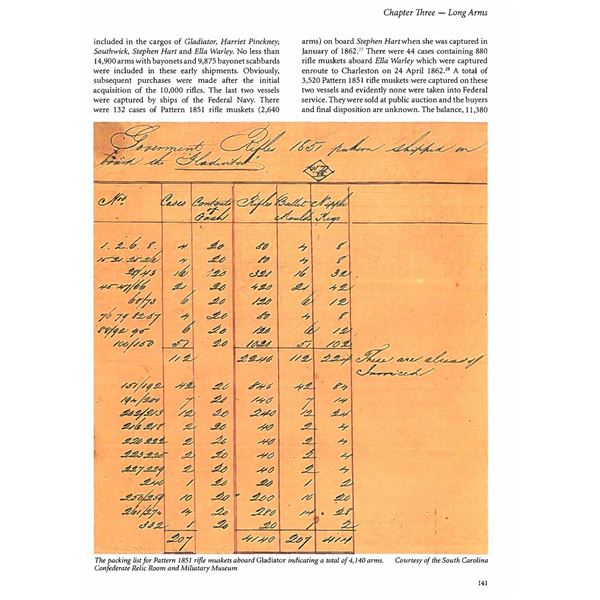 Chapter Three — Long Arms
included in the cargos of Gladiator, Harriet Pinckney,
Southwick, Stephen Hart and Ella Warley. No less than
14,900 arms with bayonets and 9,875 bayonet scabbards
were included in these early shipments. Obviously,
subsequent purchases were made after the initial
acquisition of the 10,000 rifles. The last two vessels
were captured by ships of the Federal Navy. There
were 132 cases of Pattern 1851 rifle muskets (2,640
arms) on board Stephen Hart when she was captured in
January of 1862.27 There were 44 cases containing 880
rifle muskets aboard Ella Warley which were captured
enroute to Charleston on 24 April 1862.28 A total of
3,520 Pattern 1851 rifle muskets were captured on these
two vessels and evidently none were taken into Federal
service. They were sold at public auction and the buyers
and final disposition are unknown. The balance, 11,380
Goverment Rifles 1651 pattern shipped on
board the "Gladiator"
Nos. Cases Contents of Each Rifles Bullet Moulds Nipple Keys
1. 2. 6. 8. 4 20 80 4 8
15-21.25.26 4 20 80 4 8
29/43 16 20 320 16 32
45-47/66 21 20 420 21 42
68/73 6 20 120 6 12
76 79 82 57 4 20 80 4 8
88/92 95 6 20 120 6 12
100/150 51 20 1020 51 102
112 2240 112 224 These are already
Invoiced
151/192 42 20 840 42 84
194/200 7 20 140 7 14
202/213 12 20 240 12 24
216 218 2 20 40 2 4
220 222 2 20 40 2 4
223 225 2 20 40 2 4
227 229 2 20 40 2 4
240 1 20 20 1 2
250/259 10 20 200 10 20
261/270 4 20 280 14 28
332 1 20 20 1 2
207 4140 207 414
The packing list for Pattern 1851 rifle muskets aboard Gladiator indicating a total of 4,140 arms. Courtesy of the South Carolina
Confederate Relic Room and Miliatary Museum
141